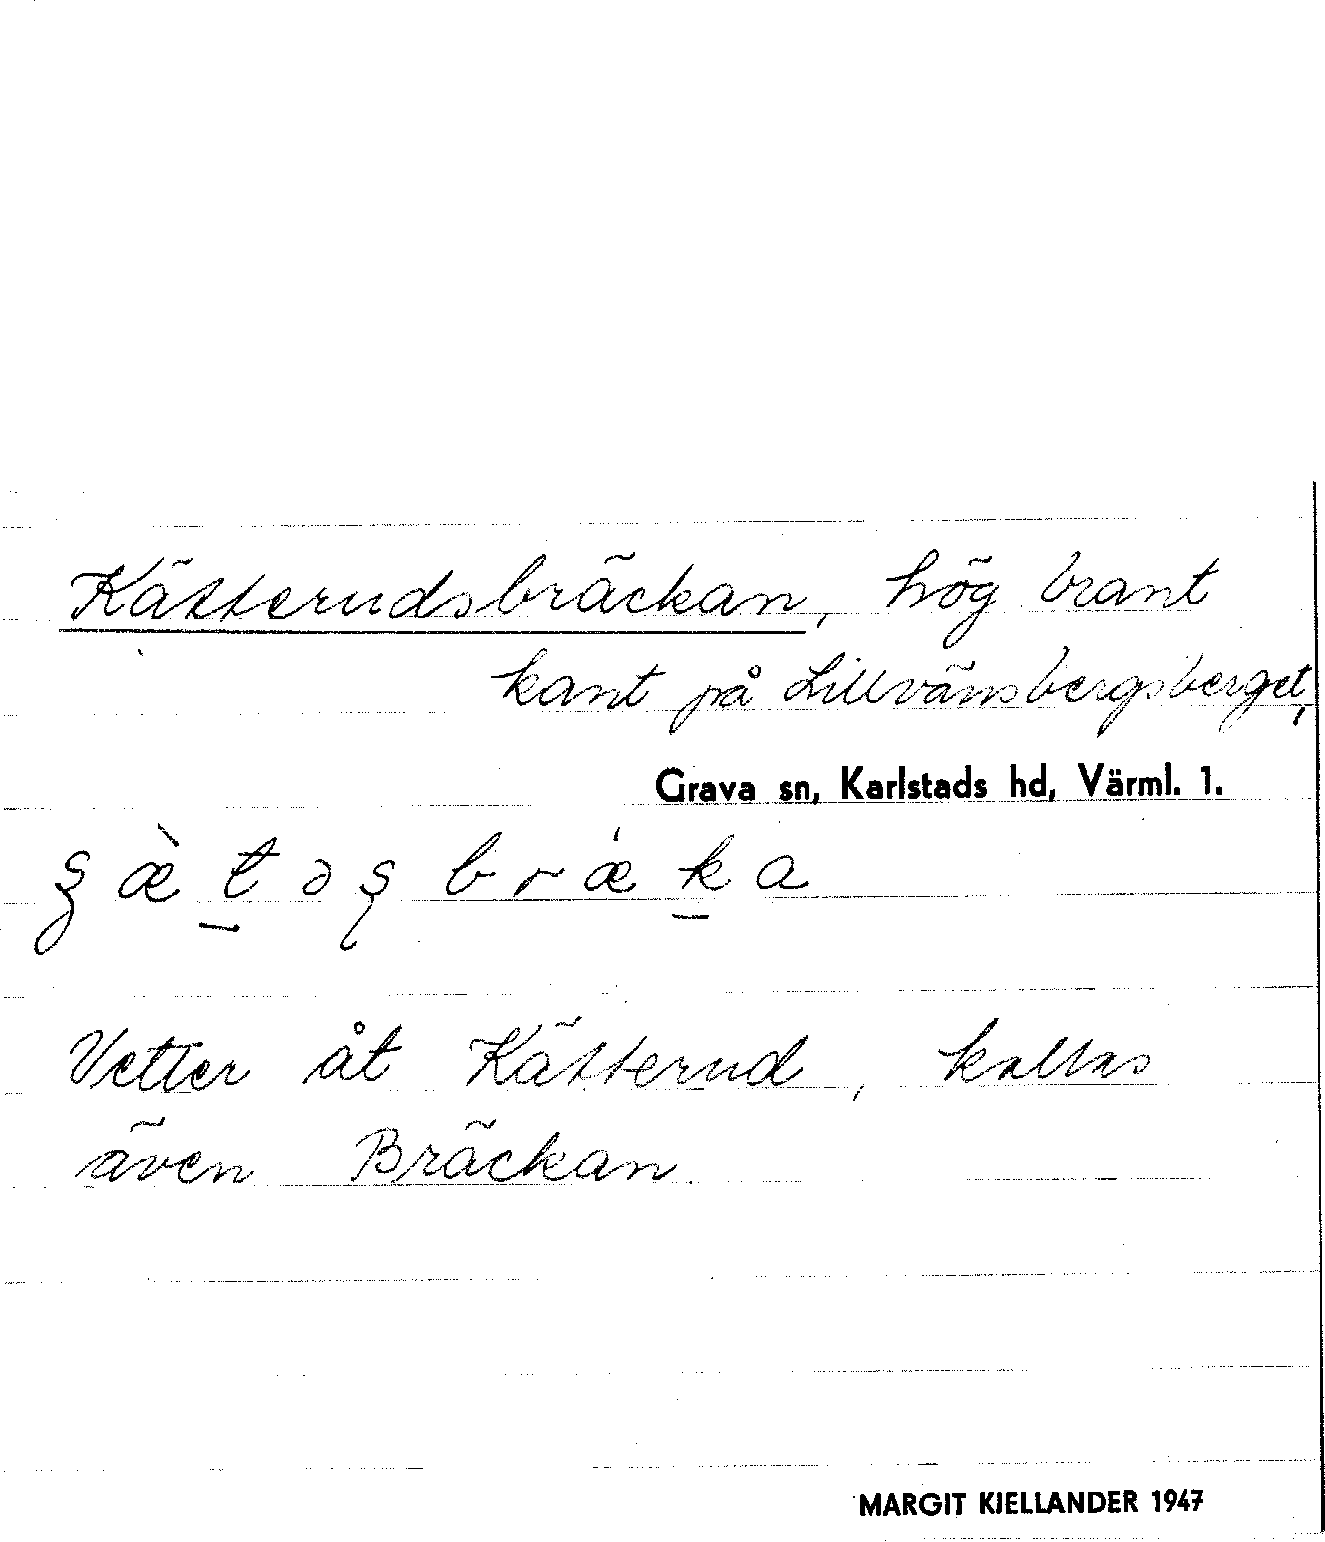 Kätterudsbräckan, hög brant
kant på Lillvänsbergsberget,
Grava sn, Karlstads hd, Värml. 1.
Vetter åt Kätterud, kallas
även Bräckan.
MARGIT KJELLANDER 1947